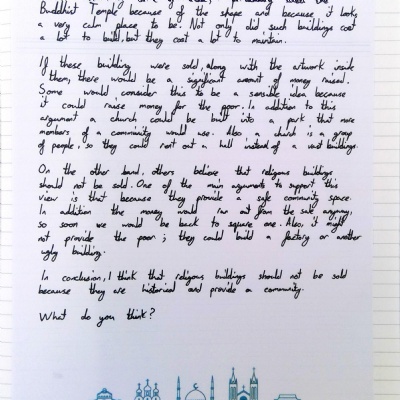 Buddhist Temple because of the shape and because it looks
a very calm place to be. Not only did such buildings cost
a lot to build, but they cost a lot to maintain.
If these building were sold, along with the artwork inside
them, there would be a significant amount of money raised.
Some would consider this to be a sensible idea because
it could raise money for the poor. In addition to this
argument a church could be built into a park that more
members of a community would use. Also, a church is a group
of people, so they could rent out a hall instead of a vast buildings.
On the other hand, others believe that religous buildings
should not be sold. One of the main arguments to support this
view is that because they provide a safe community space.
In addition the money would run out from the sale anyway,
so soon we would be back to square one. Also, it might
not provide the poor; they could build a factory or another
ugly building.
In conclusion, I think that religous buildings should not be sold
because they are historical and provide a community.
What do you think?